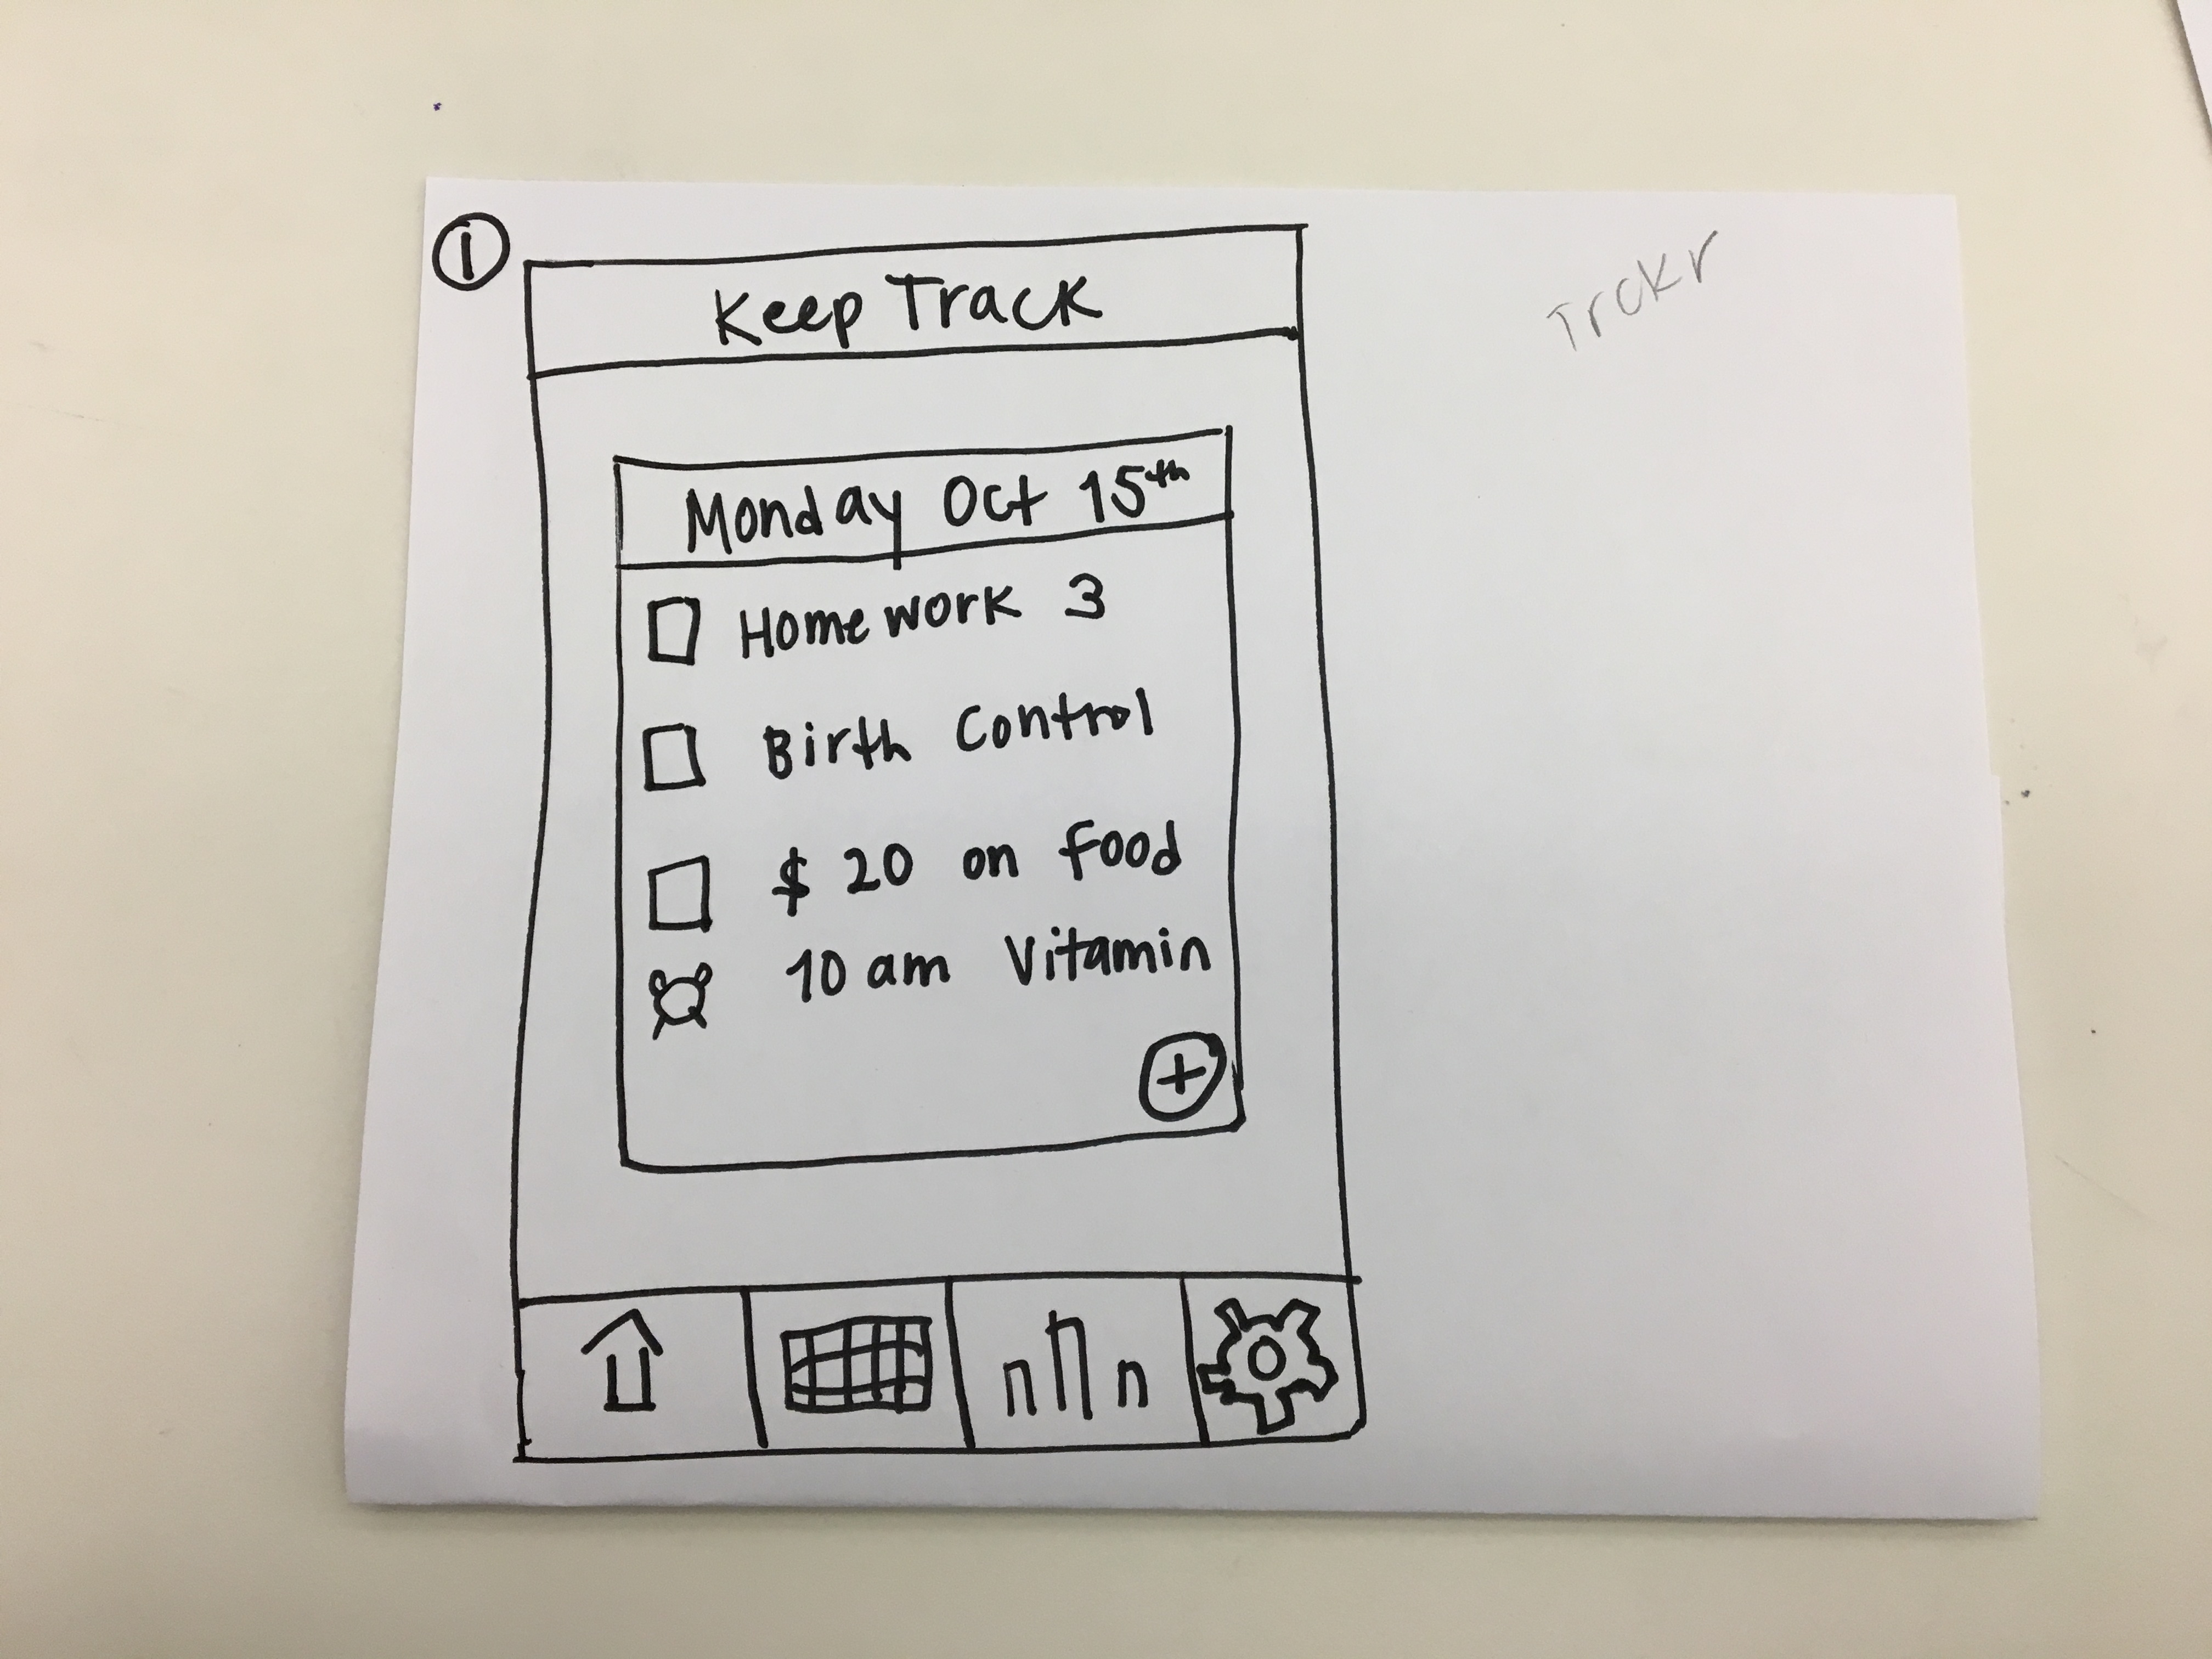 1
Keep Track
Trckr
Monday Oct 15th
Homework 3
Birth Control
$20 on food
10 am Vitamin
+